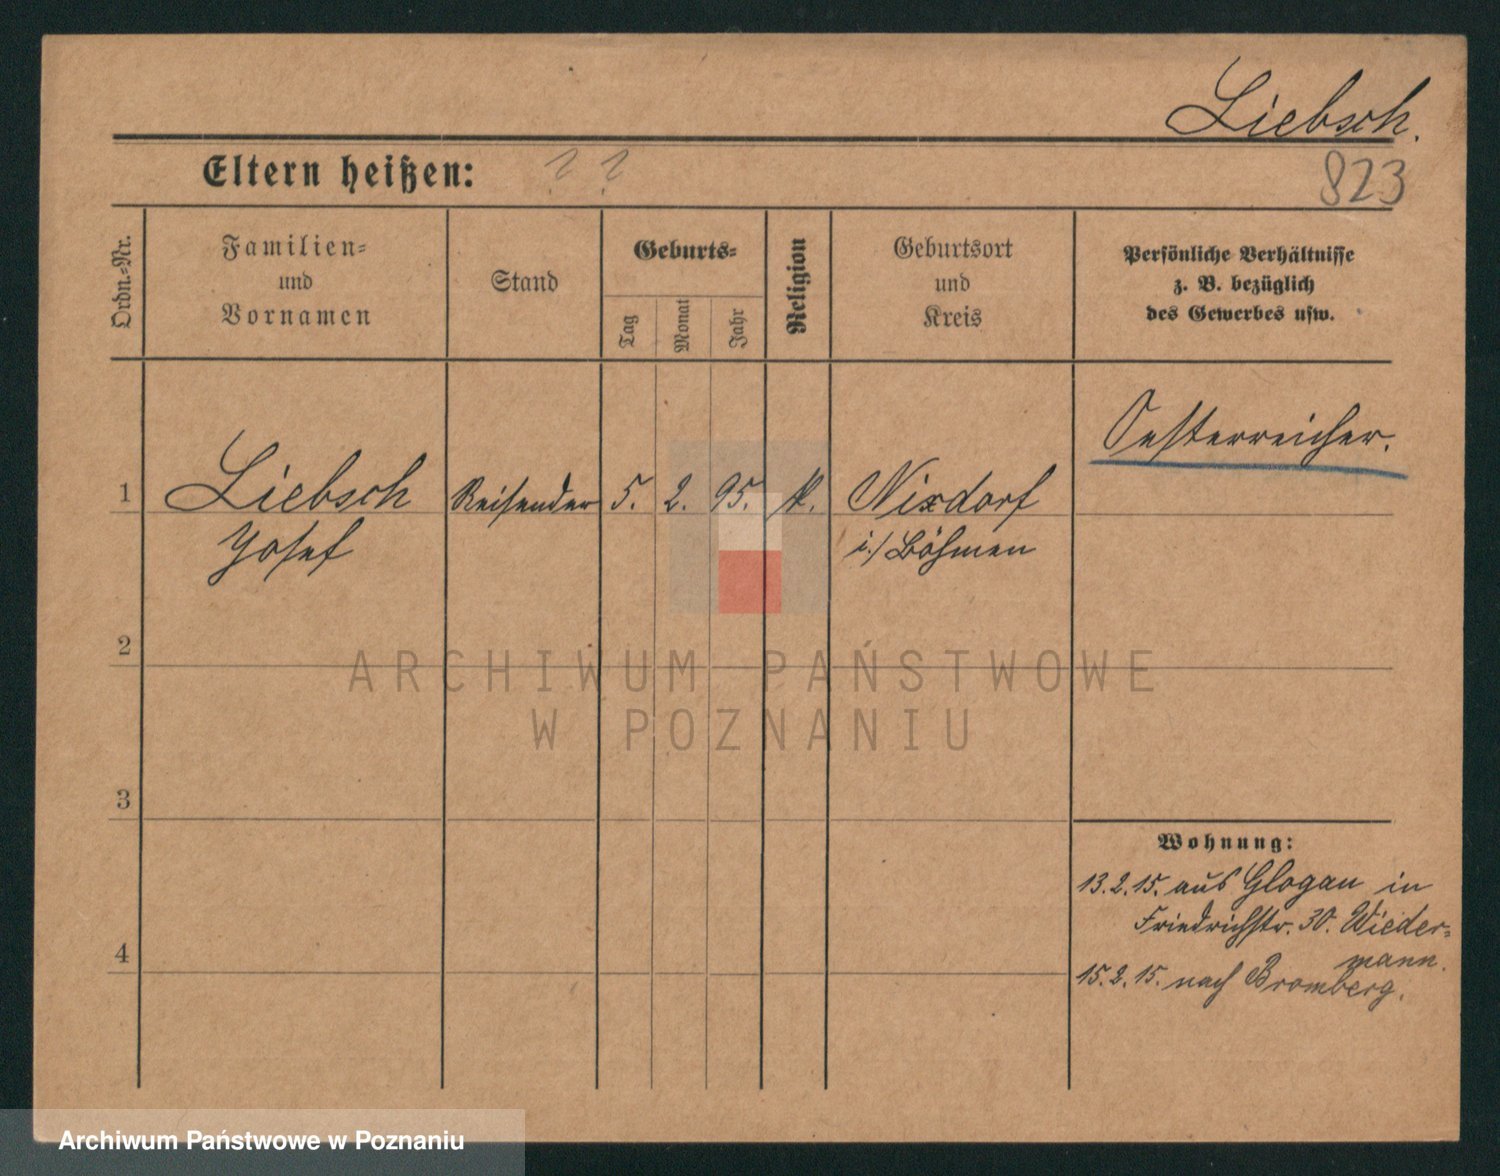 Liebsch.
Eltern heißen: ? ?
823
Ordn.-Nr.
Familien-
und
Vornamen
Stand
Geburts-
Tag
Monat
Jahr
Religion
Geburtsort
und
Kreis
Persönliche Verhältnisse
z. B. bezüglich
des Gewerbes usw.
Oesterreicher.
1 Liebsch Reisender 5. 2. 95. k. Nixdorf
Josef i./Böhmen
2
ARCHIWUM PAŃSTWOWE
W POZNANIU
3
Wohnung:
13.2.15. aus Glogau in
Friedrichstr. 30. Wieder-
mann.
4
15.2.15. nach Bromberg.
Archiwum Państwowe w Poznaniu